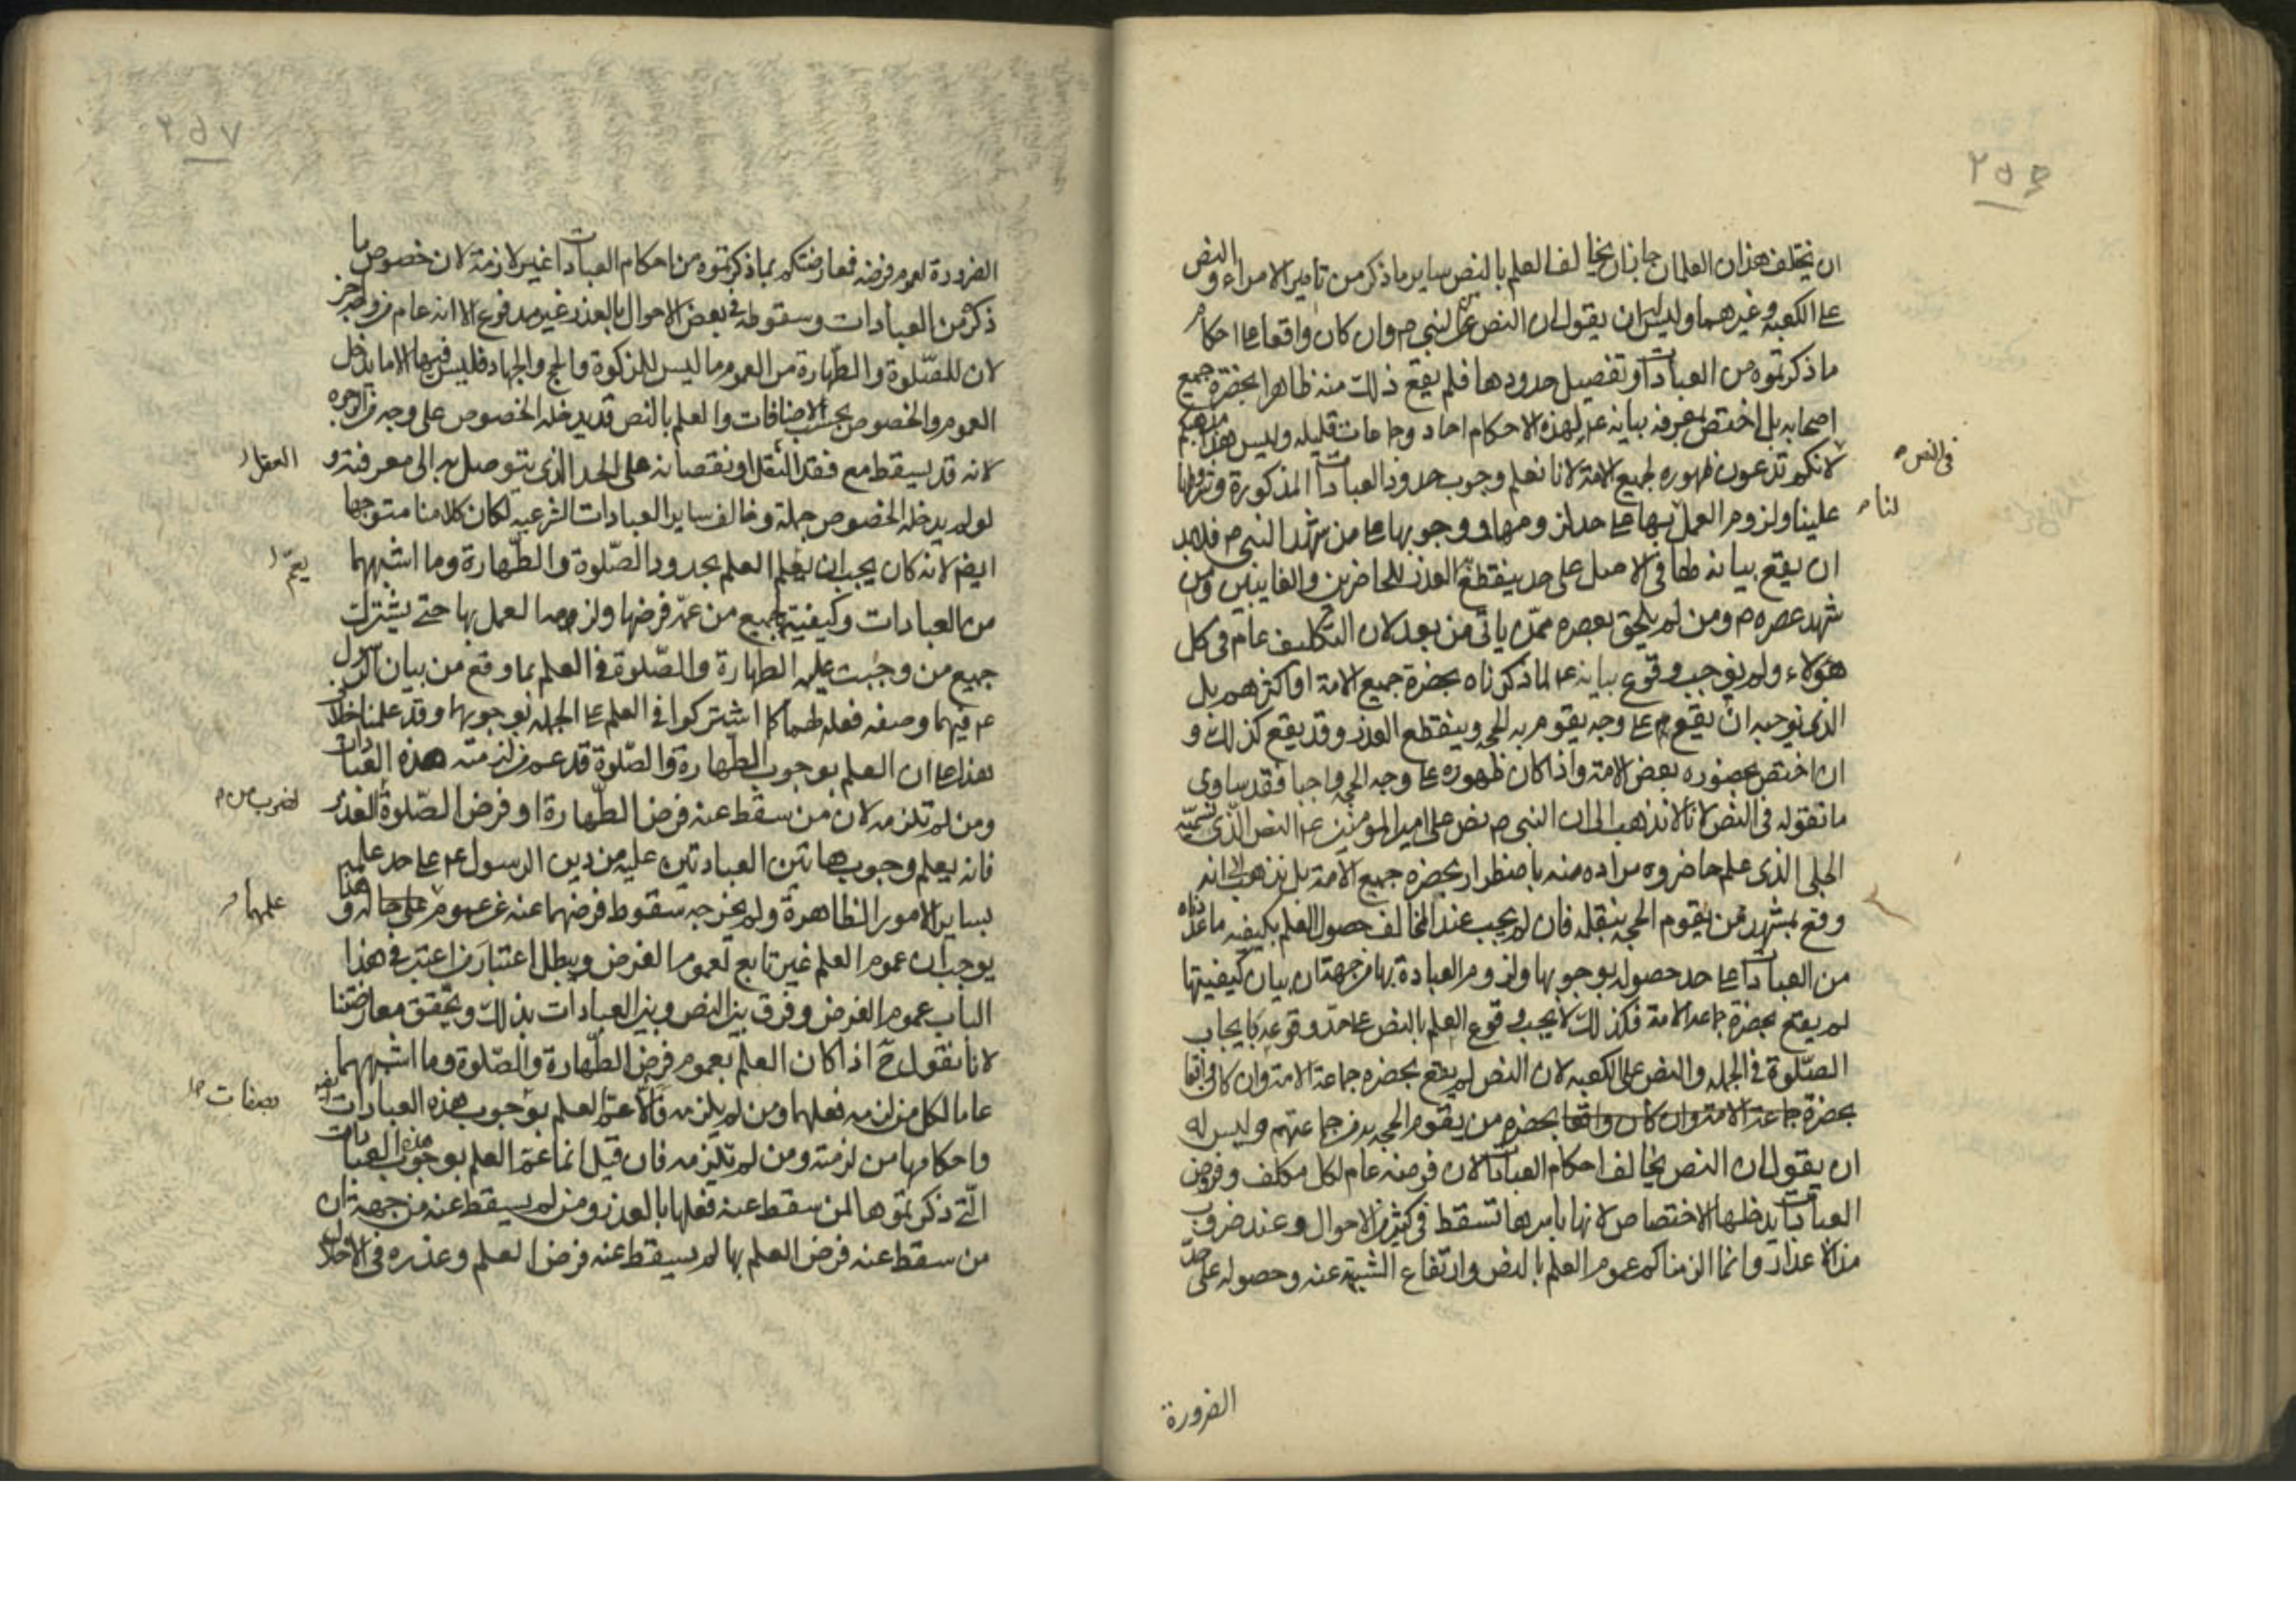 ٢٥٦
ان يختلف هذان العلمان جاز ان يخالف العلم بالنص ساير ما ذكر من تامير الامراء والنص
على الكعبة وغيرهما وليس لهم ان يقول ان النص من النبي ص وان كان واقعا على احكام
ما ذكرتموه من العبادات وتفصيل حدودها فلم يقع ذلك منه ظاهرا بحضرة جميع
اصحابه بل اختص بمعرفه بيانه ع لهذه الاحكام احاد وجماعات قليله وليس هذا مذهبكم
في النص
لانكم تدعون ظهوره لجميع الامة لانا نعلم وجوب حدود العبادات المذكورة وشروطها
لنا
علينا ولزوم العمل بها على حد لزومها ووجوبها على من شهد النبي ص فلابد
ان يقع بيانه لها في الاصل على حد ينقطع العذر للحاضرين والغايبين ومن
شهد عصره ص ومن لم يلحق بعصره ممن ياتي من بعد لان التكليف عام في كل
هؤلاء ولم نوجب وقوع بيانه ع لما ذكرناه بحضرة جميع الامة او اكثرهم بل
الذي نوجبه ان يقع على وجه يقوم به الحجه وينقطع العذر وقد يقع كذلك و
ان اختص بحضوره بعض الامة واذا كان ظهوره على وجه الحجه واجبا فقد ساوى
ما نقوله في النص لانا لا نذهب الى ان النبي ص نص على امير المومنين ع النص الذي نسميه
الجلي الذي علم حاضروه مراده منه باضطرار بحضرة جميع الامة بل نذهب الى انه
وقع بمشهد من يقوم الحجه بنقله فان لم يجب عند المخالف حصول العلم بكيفيه ما عددناه
من العبادات على حد حصوله بوجوبها ولزوم العبادة بها من جهة ان بيان كيفيتها
لم يقع بحضرة جماعة الامة فكذلك لا يجب وقوع العلم بالنص على حد وقوعه بايجاب
الصلوة في الجمله والنص على الكعبه لان النص لم يقع بحضره جماعة الامة وان كان واقعا
بحضرة جماعة الامة وان كان واقعا بحضره من يقوم الحجه به من جماعتهم وليس له
ان يقول ان النص يخالف احكام العبادات لان فرضه عام لكل مكلف وفروض
العبادات يدخلها الاختصاص لانها باسرها تسقط في كثير من الاحوال وعند ضروب
من الاعذار وانما الزمناكم عموم العلم بالنص وارتفاع الشبهة عنه وحصوله على حد
الضرورة
٢٥٧
الضرورة لعموم فرضه فمعارضتكم بما ذكرتموه من احكام العبادات غير لازمة لان خصوص ما
ذكر من العبادات وسقوطه في بعض الاحوال بالعذر غير مدفوع الا انه عام من وجه اخر
لان للصلوة والطهارة من العموم ما ليس للزكوة والحج والجهاد فليس فيها الا ما يدخله
العموم والخصوص بحسب الاضافات والعلم بالنص قد يدخله الخصوص على وجه من الوجوه
لانه قد يسقط مع فقد النقل او نقصانه على الحد الذي يتوصل به الى معرفته و
العقل
لو لم يدخله الخصوص جملة وخالف ساير العبادات الشرعيه لكان كلامنا متوجها
ايضا لانه كان يجب ان يعلم العلم بحدود الصلوة والطهارة وما اشبههما
يعم
من العبادات وكيفيته جميع من عمه فرضها ولزومه العمل بها حتى يشترك
جميع من وجبت عليه الطهارة والصلوة في العلم بما وقع من بيان الرسول
ع فيهما وصفه فعله لهما كما اشتركوا في العلم على الجمله بوجوبهما وقد علمنا خلاف
هذا على ان العلم بوجوب الطهارة والصلوة قد عم من لزمته هذه العبادات
ومن لم تلزمه لان من سقط عنه فرض الطهارة او فرض الصلوة العذر
لضرب من
فانه يعلم وجوب هاتين العبادتين عليه من دين الرسول ع على حد علمه
بساير الامور الظاهرة ولم يخرجه سقوط فرضهما عنه عن عموم على حاله وهذا
علمهما
يوجب ان عموم العلم غير تابع لعموم الفرض ويبطل اعتبار من اعتبر في هذا
الباب عموم الفرض وفرق بين النص وبين العبادات بذلك ويحقق معارضتنا
لانا نقول ح اذا كان العلم بعموم فرض الطهارة والصلوة وما اشبههما
عاما لكل من لزمه فعلهما ومن لم يلزمه والا عم العلم بوجوب هذه العبادات
بصفات
واحكامها من لزمته ومن لم تلزمه فان قيل انما عم العلم بوجوب هذه العبادات
التي ذكرتموها لمن سقط عنه فعلها بالعذر ومن لم يسقط عنه من جهة ان
من سقط عنه فرض العلم بها لم يسقط عنه فرض العلم وعذره في الاخلال